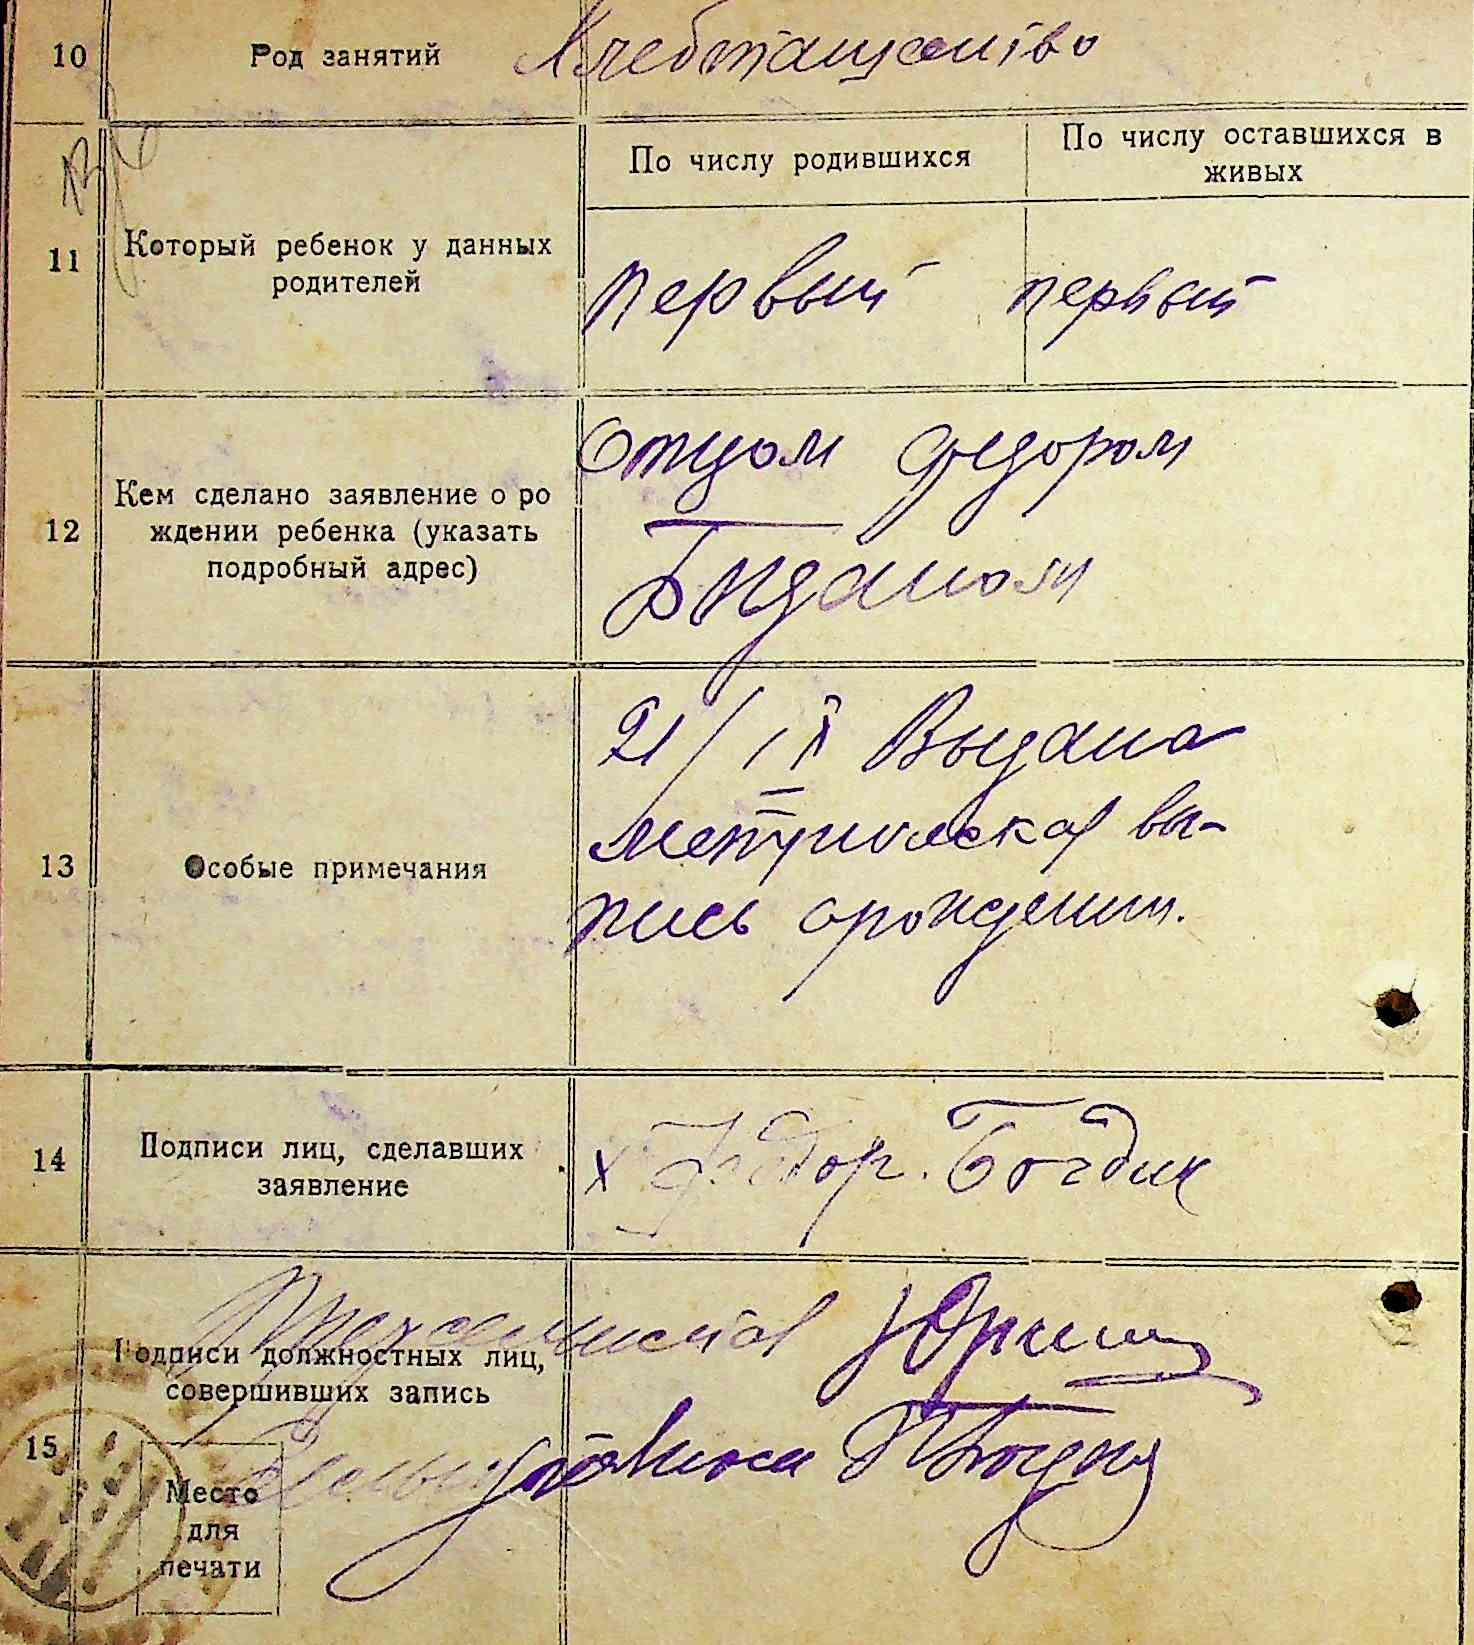 10 Род занятий Хлебопашество
По числу родившихся По числу оставшихся в
живых
11 Который ребенок у данных
родителей
первый первый
12 Кем сделано заявление о ро
ждении ребенка (указать
подробный адрес)
Отцом Федором
13 Особые примечания
21/IX Выдана
метрическая вы-
пись о рождении.
14 Подписи лиц, сделавших
заявление
х Федор. Богдик
15 Подписи должностных лиц,
совершивших запись
Место
для
печати